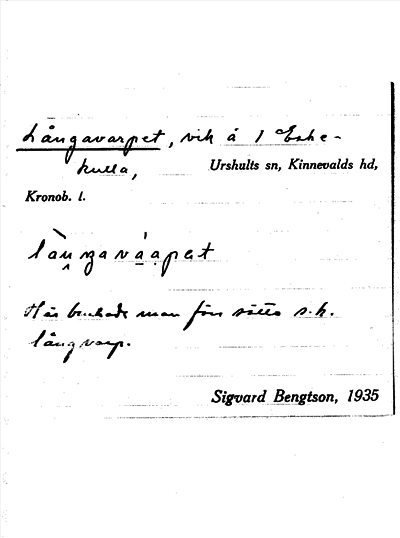 Långavarpet, vik å 1 Eske-
kulla, Urshults sn, Kinnevalds hd,
Kronob. l.
làngavá̱apat
Här brukade man förr sätta s.k.
långvarp.
Sigvard Bengtson, 1935